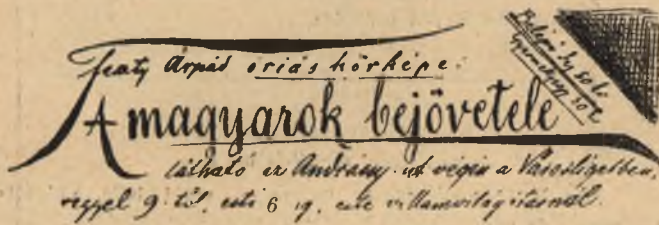 Feszty Árpád óriás körképe:
A magyarok bejövetele
látható az Andrássy-út végén a Városligetben,
reggel 9 től, esti 6 ig, este villamvilágításnál.
Belépő-jegy 50 kr
Gyermekjegy